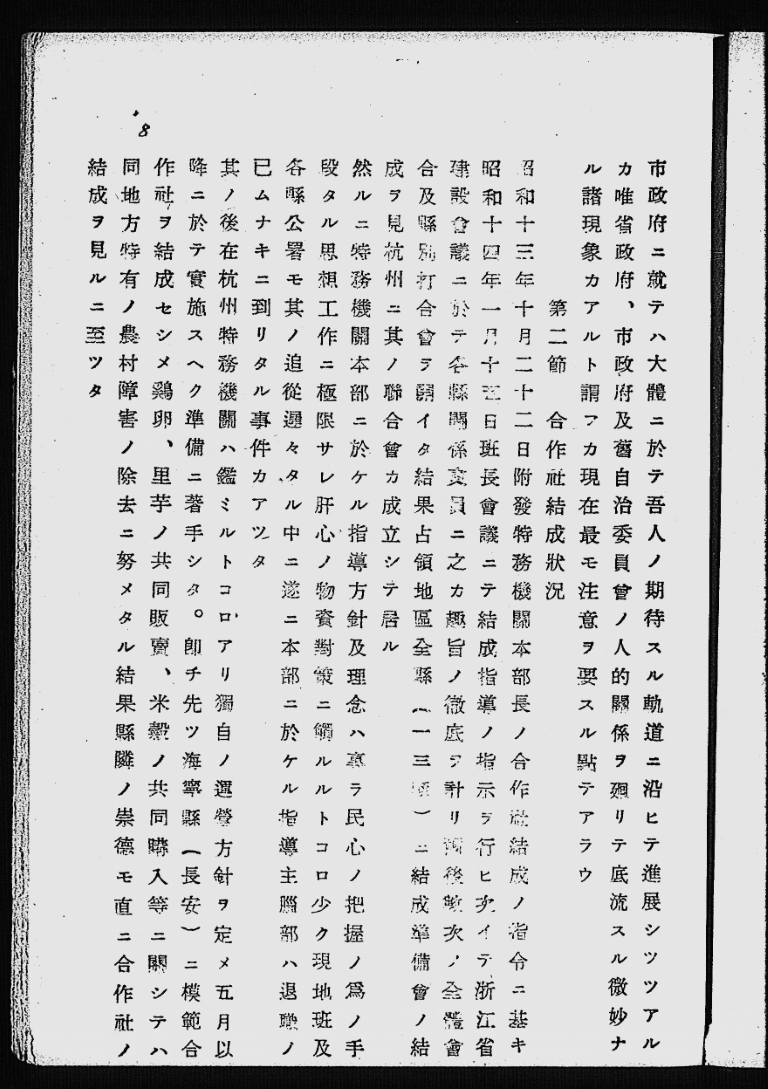 8
市政府ニ就テハ大體ニ於テ吾人ノ期待スル軌道ニ沿ヒテ進展シツツアル
カ唯省政府、市政府及舊自治委員會ノ人的關係ヲ廻リテ底流スル微妙ナ
ル諸現象カアルト謂フカ現在最モ注意ヲ要スル點テアラウ
第二節 合作社結成狀況
昭和十三年十月二十二日附發特務機關本部長ノ合作社結成ノ指令ニ基キ
昭和十四年一月十五日班長會議ニテ結成指導ノ指示ヲ行ヒ次イテ浙江省
建設會議ニ於テ各縣關係委員ニ之カ趣旨ノ徹底ヲ計リ爾後數次ノ全體會
合及縣別打合會ヲ開イタ結果占領地區全縣(一三縣)ニ結成準備會ノ結
成ヲ見杭州ニ其ノ聯合會カ成立シテ居ル
然ルニ特務機關本部ニ於ケル指導方針及理念ハ專ラ民心ノ把握ノ爲ノ手
段タル思想工作ニ極限サレ肝心ノ物資對策ニ觸ルルトコロ少ク現地班及
各縣公署モ其ノ追從遲々タル中ニ遂ニ本部ニ於ケル指導主腦部ハ退職ノ
已ムナキニ到リタル事件カアツタ
其ノ後在杭州特務機關ハ鑑ミルトコロアリ獨自ノ運營方針ヲ定メ五月以
降ニ於テ實施スヘク準備ニ著手シタ。卽チ先ツ海寧縣(長安)ニ模範合
作社ヲ結成セシメ鷄卵、里芋ノ共同販賣、米穀ノ共同購入等ニ關シテハ
同地方特有ノ農村障害ノ除去ニ努メタル結果縣隣ノ崇德モ直ニ合作社ノ
結成ヲ見ルニ至ツタ